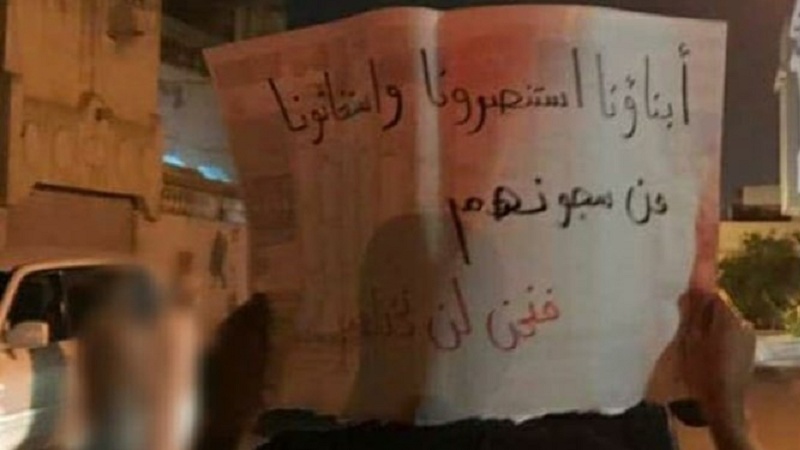 أبناؤنا استنصرونا واستغاثونا
من سجونهم
فنحن لن